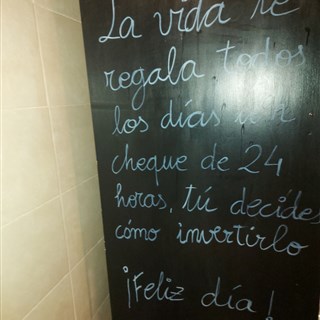 La vida te
regala todos
los días un
cheque de 24
horas, tú decides
cómo invertirlo
¡Feliz día!